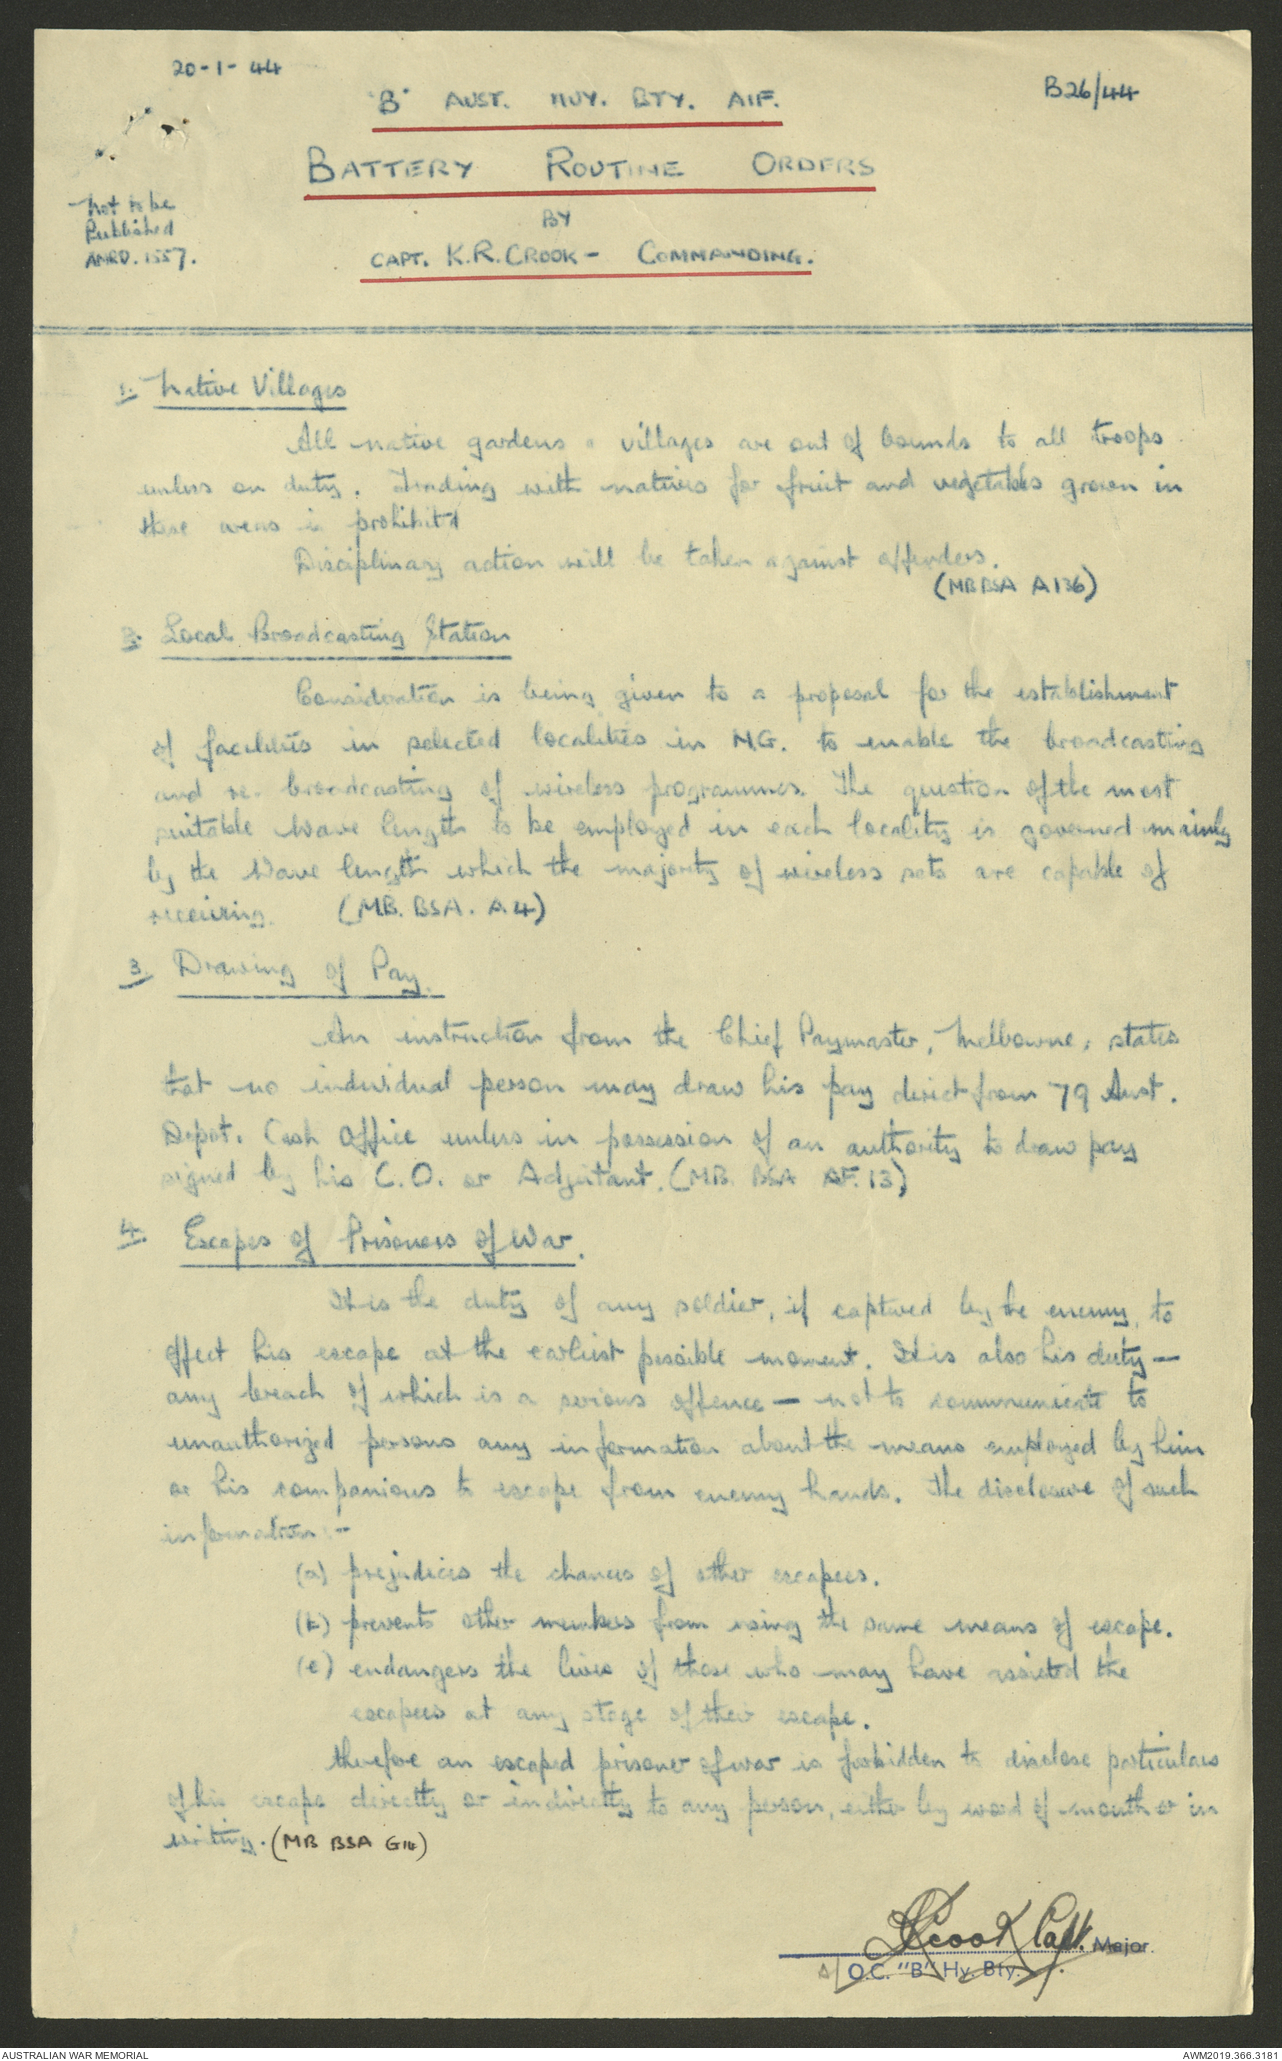 20-1-44
"B" AUST. HVY. BTY. AIF.
B26/44
BATTERY ROUTINE ORDERS
Not to be
Published
AMRO. 1557.
BY
CAPT. K.R. CROOK - COMMANDING.
1. Native Villages
All native gardens & villages are out of bounds to all troops
unless on duty. Trading with natives for fruit and vegetables grown in
these areas is prohibited
Disciplinary action will be taken against offenders.
(MB BSA A136)
2. Local Broadcasting Station
Consideration is being given to a proposal for the establishment
of facilities in selected localities in N.G. to enable the broadcasting
and re-broadcasting of wireless programmes. The question of the most
suitable wave length to be employed in each locality is governed mainly
by the wave length which the majority of wireless sets are capable of
receiving. (MB. BSA. A.4)
3. Drawing of Pay.
An instruction from the Chief Paymaster, Melbourne, states
that no individual person may draw his pay direct from 79 Aust.
Depot. Cash Office unless in possession of an authority to draw pay
signed by his C.O. or Adjutant. (MB. BSA AF. 13)
4. Escapes of Prisoners of War.
It is the duty of any soldier, if captured by the enemy, to
effect his escape at the earliest possible moment. It is also his duty —
any breach of which is a serious offence — not to communicate to
unauthorized persons any information about the means employed by him
or his companions to escape from enemy hands. The disclosure of such
information :-
(a) prejudices the chances of other escapees.
(b) prevents other members from using the same means of escape.
(c) endangers the lives of those who may have assisted the
escapees at any stage of their escape.
therefore an escaped prisoner of war is forbidden to disclose particulars
of his escape directly or indirectly to any person, either by word of mouth or in
writing. (MB BSA G14)
KRCrook Capt. Major
A/ O.C. "B" Hy. Bty.
AUSTRALIAN WAR MEMORIAL
AWM2019.366.3181